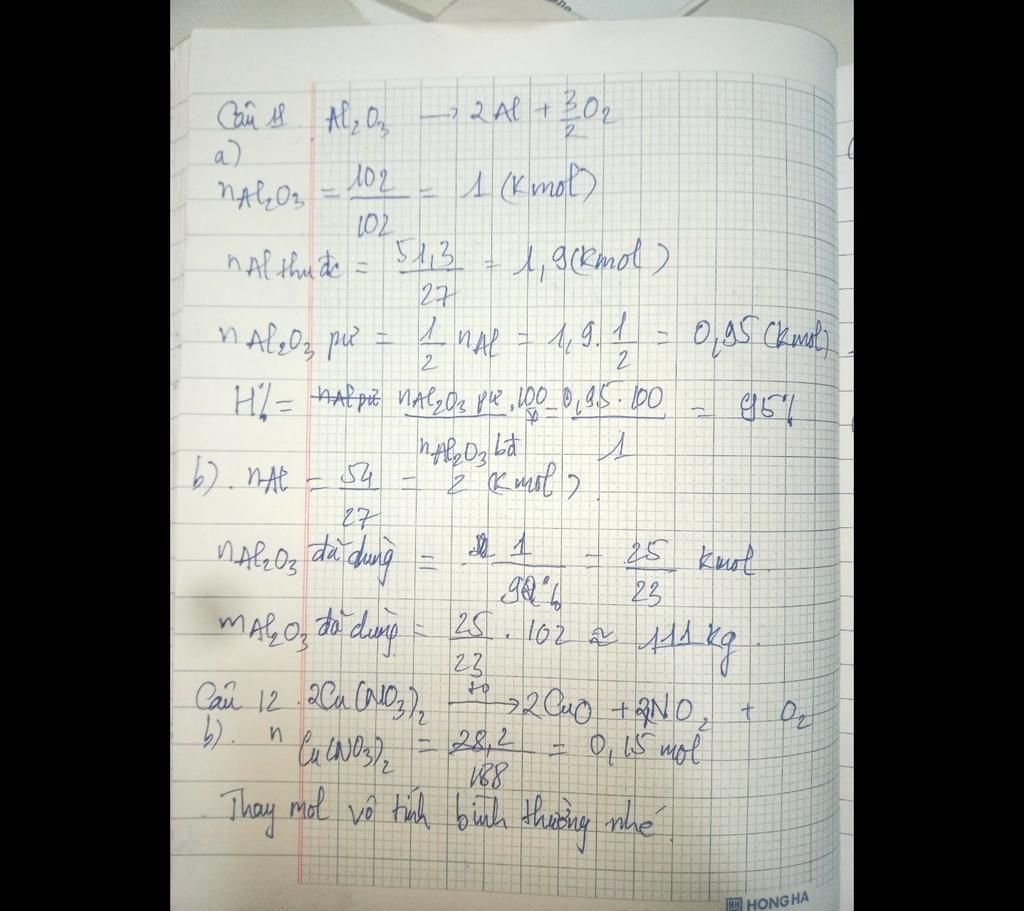 Câu 11 Al₂O₃ → 2Al + 3/2 O₂
a)
nAl₂O₃ = 102/102 = 1 (Kmol)
nAl thu đc = 51,3/27 = 1,9 (Kmol)
nAl₂O₃ pư = 1/2 nAl = 1,9 . 1/2 = 0,95 (Kmol)
H% = nAl₂O₃ pư . 100 / nAl₂O₃ bđ = 0,95 . 100 / 1 = 95%
b). nAl = 54/27 = 2 (Kmol)
nAl₂O₃ đã dùng = 1/92% = 25/23 kmol
mAl₂O₃ đã dùng = 25/23 . 102 ≈ 111 kg.
Câu 12. 2Cu(NO₃)₂ —t⁰→ 2CuO + NO₂ + O₂
b). nCu(NO₃)₂ = 28,2/188 = 0,15 mol
Thay mol vô tính bình thường nhé.
HH HONG HA